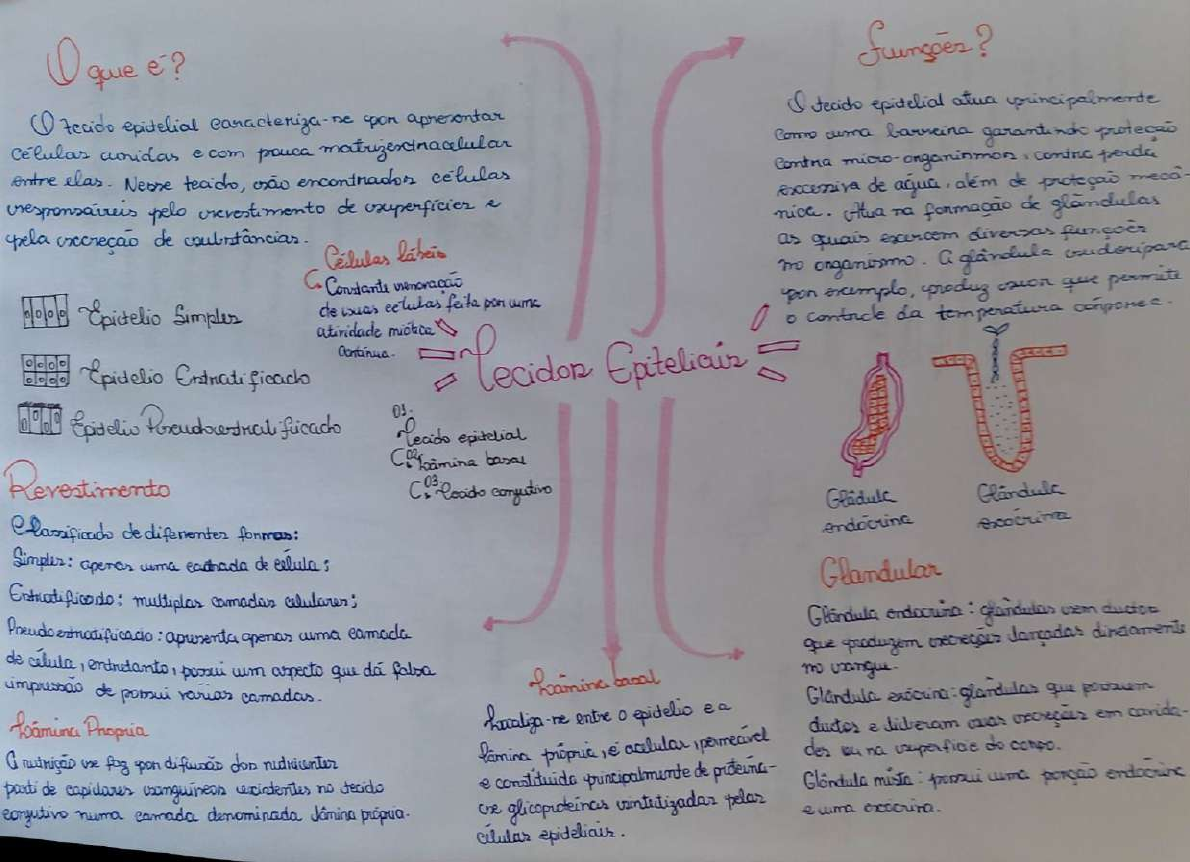 O que é?
O tecido epitelial caracteriza-se por apresentar
células unidas e com pouca matriz extracelular
entre elas. Nesse tecido, são encontrados células
responsáveis pelo revestimento de superfícies e
pela secreção de substâncias.
Células lábeis
Constante renovação
de suas células feita por uma
atividade miótica
contínua.
Epitelio Simples
Epitelio Estratificado
Epitelio Pseudoestratificado
Tecidos Epiteliais
01.
Tecido epitelial
02. Lâmina basal
03. Tecido conjutivo
Revestimento
Classificado de diferentes formas:
Simples: apenas uma camada de célula;
Estratificado: multiplas camadas celulares;
Pseudoestratificado: apresenta apenas uma camada
de célula, entretanto, possui um aspecto que dá falsa
impressão de possui varias camadas.
Lâmina Propria
A nutrição se faz por difusão dos nutrientes
parti de capilares sanguíneos existentes no tecido
conjutivo numa camada denominada lâmina própia.
Lâmina basal
Localiza-se entre o epitelio e a
lâmina própria, é acelular, permeável
e constituida principalmente de proteína-
se glicoproteínas sintetizadas pelas
células epiteliais.
Funções?
O tecido epitelial atua principalmente
como uma barreira garantindo proteção
contra micro-organismos, contra perda
excessiva de água, além de proteção mecâ-
nica. Atua na formação de glândulas
as quais exercem diversas funções
no organismo. A glândula sudoripara
por exemplo, produz suor que permite
o controle da temperatura corporea.
Gládula
endócrina
Glândula
exócrina
Glandular
Glândula endocrina: glândulas sem ductos
que produzem secreções lançadas diretamente
no sangue.
Glândula exócrina: glândulas que possuem
ductos e liberam suas secreções em cavida-
des ou na superfície do corpo.
Glândula mista: possui uma porção endócrina
e uma exócrina.